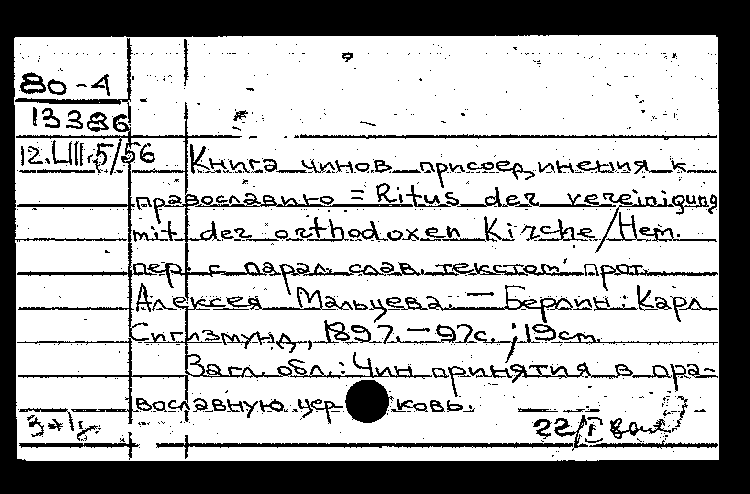 80-4
13386
12.LIII.5/56 Книга чинов присоединения к
православию = Ritus der vereinigung
mit der orthodoxen Kirche/Нем.
пер. с парал. слав. текстом прот.
Алексея Мальцева. — Берлин: Карл
Сигизмунд, 1897. — 97с.; 19cm.
Загл. обл.: Чин принятия в пра-
вославную церковь.
22/I